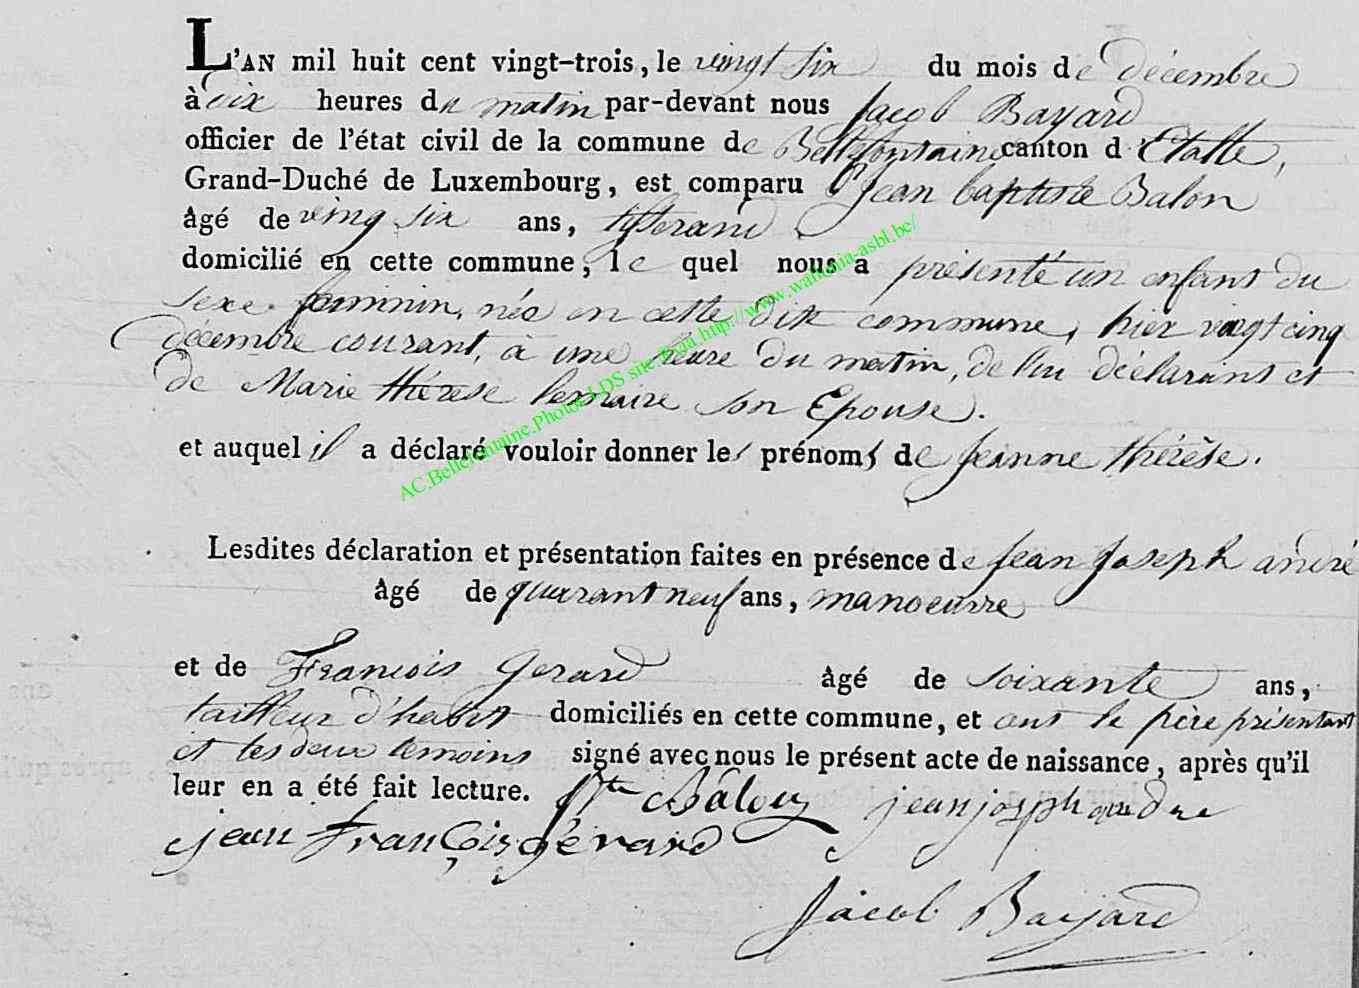 L'AN mil huit cent vingt-trois, le vingt six du mois de décembre
à dix heures du matin par-devant nous Jacob Bayard
officier de l'état civil de la commune de Bellefontaine canton d'Etalle,
Grand-Duché de Luxembourg, est comparu Jean baptiste Balon
âgé de ving six ans, tisserand
domicilié en cette commune, le quel nous a présenté un enfant du
sexe feminin, née en cette dite commune, hier vingt cinq
décembre courant, à une heure du matin, de lui déclarant et
de Marie thérese lemaire son Epouse.
et auquel il a déclaré vouloir donner les prénoms de Jeanne thérèse.
Lesdites déclaration et présentation faites en présence de Jean Joseph andré
âgé de quarant neuf ans, manoeuvre
et de Francois Gerard âgé de soixante ans,
tailleur d'habit domiciliés en cette commune, et ont le père présentant
et les deux temoins signé avec nous le présent acte de naissance, après qu'il
leur en a été fait lecture. Bte Balon jean josph andre
jean François gérard
Jacob Bayard
AC.Bellefontaine.Photos LDS site Geja http://www.wallonia-asbl.be/